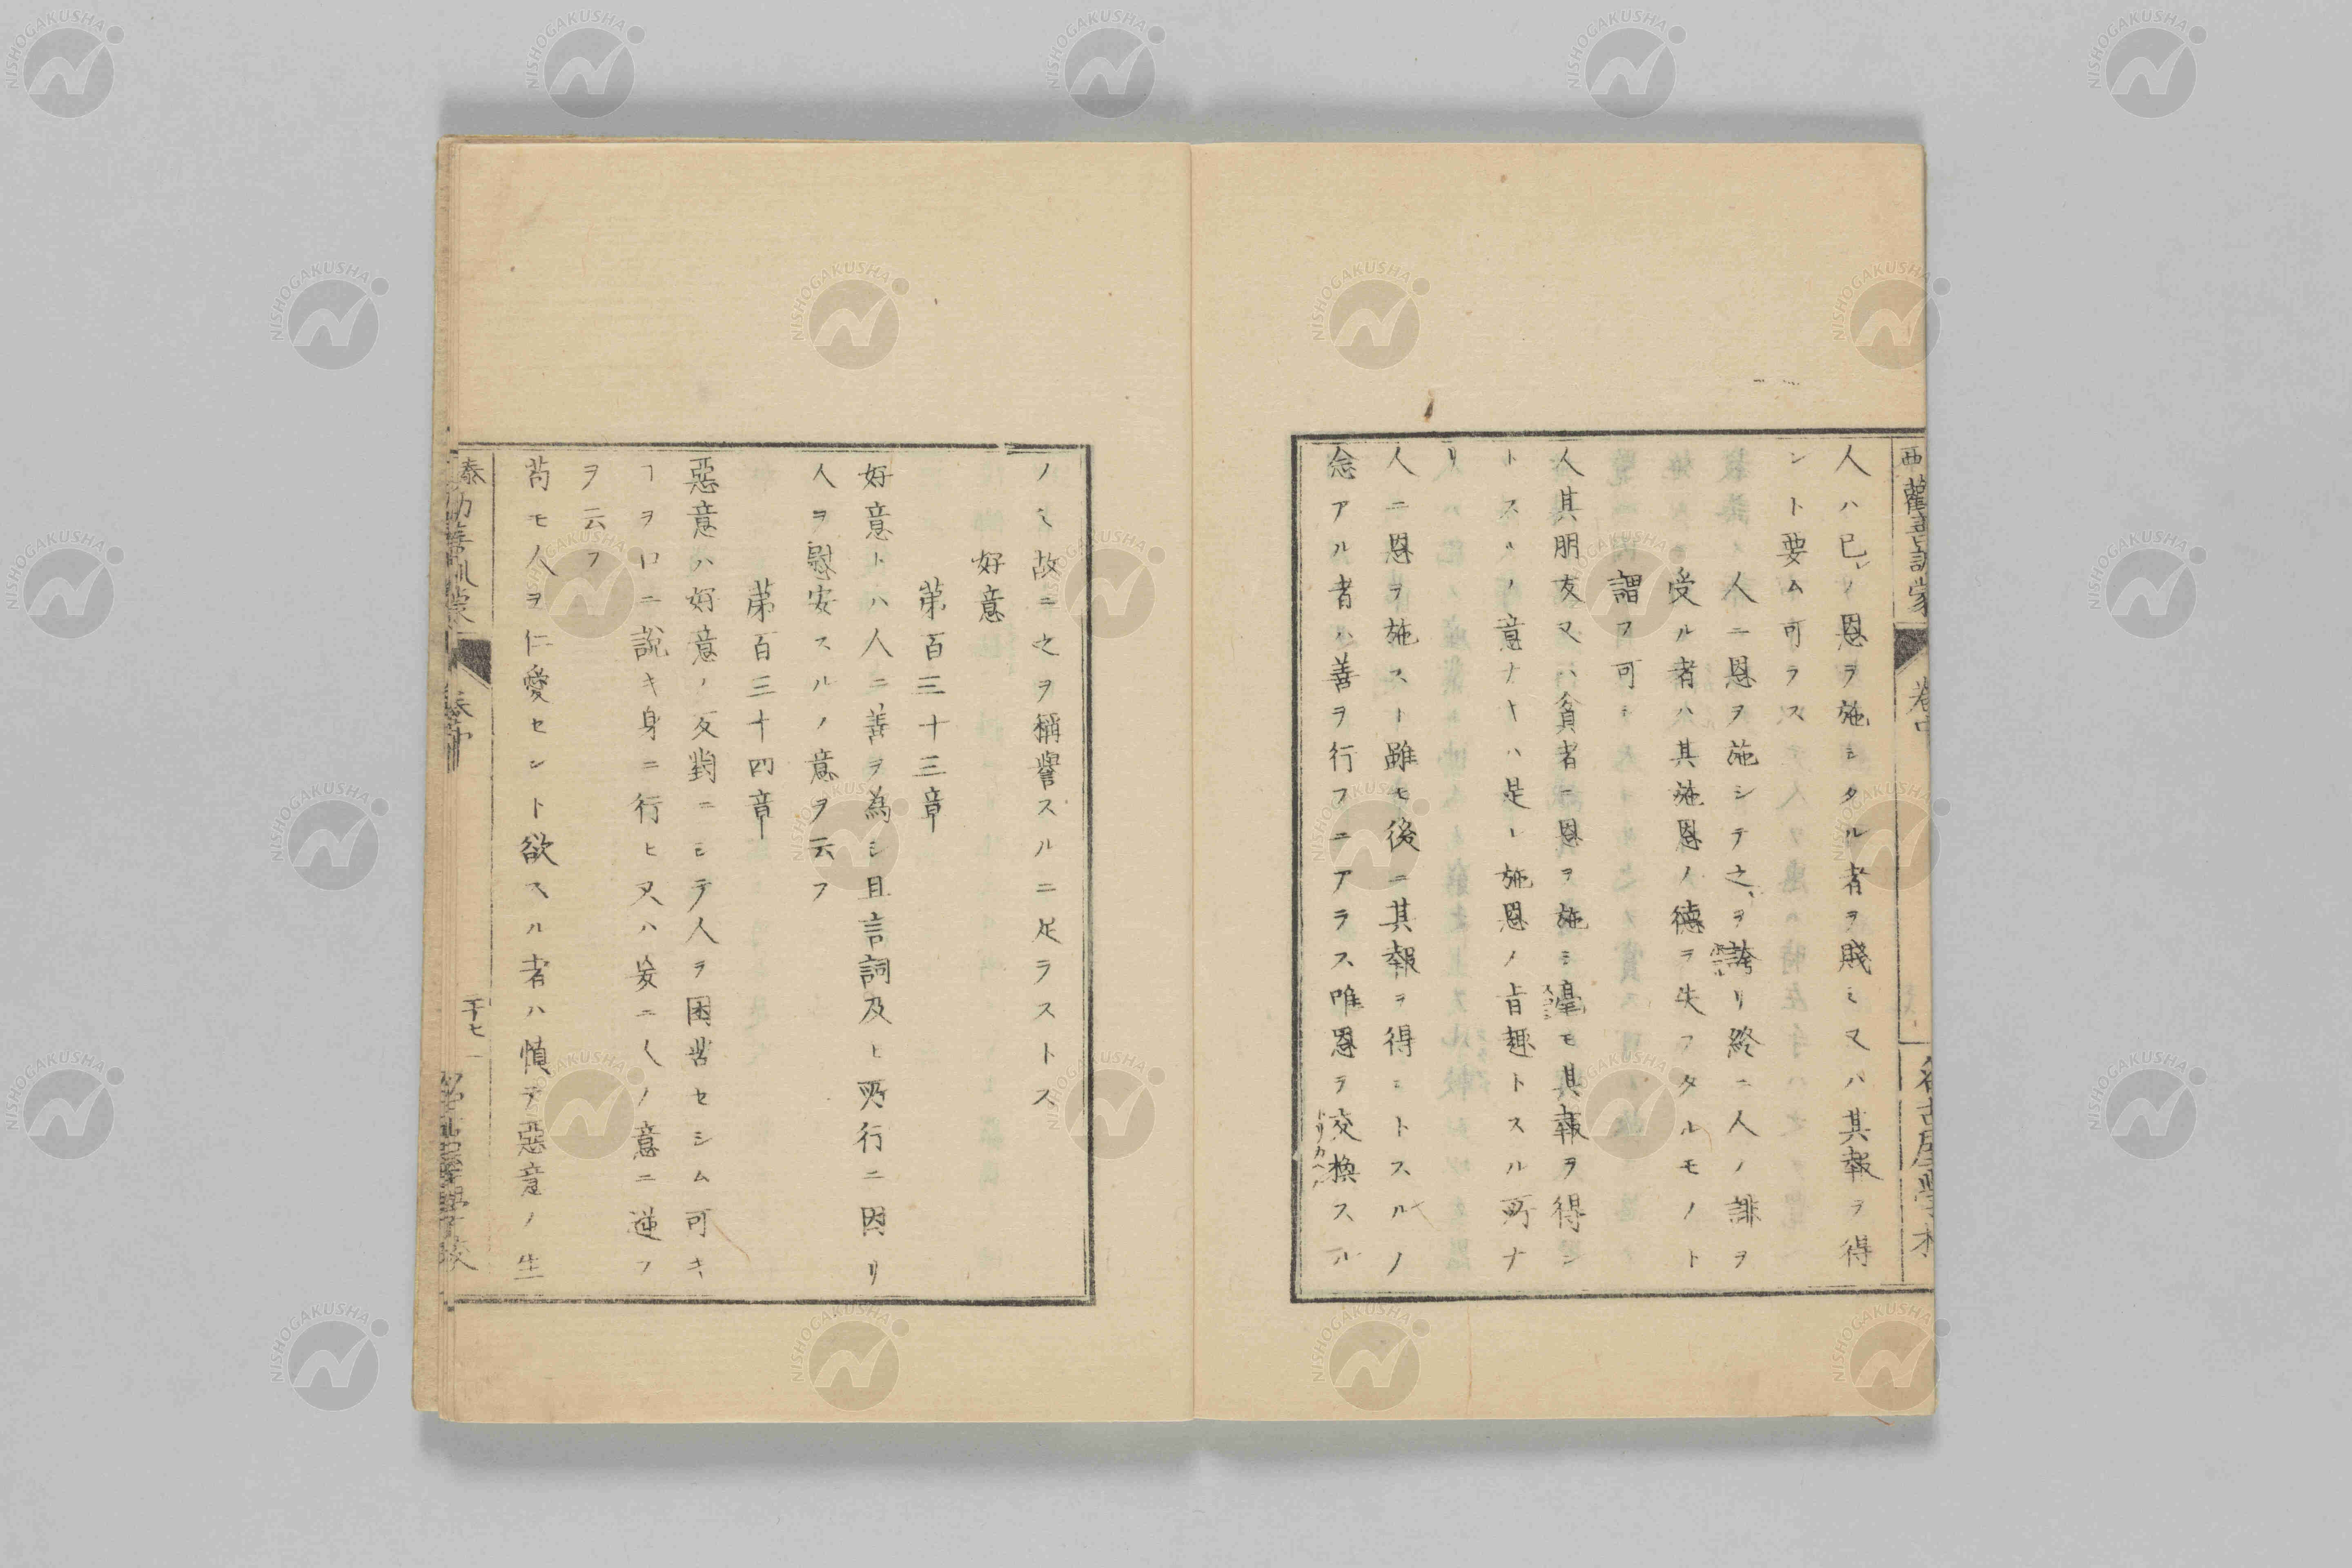 人ハ己ノ恩ヲ施シタル者ヲ賤ミ又ハ其報ヲ得
ント要ム可ラス
人ニ恩ヲ施シテ之ヲ誇リ終ニ人ノ誹ヲ
受ル者ハ其施恩ノ徳ヲ失フタルモノト
謂フ可シ
人其朋友又ハ貧者ニ恩ヲ施シ毫モ其報ヲ得ン
トスルノ意ナキハ是レ施恩ノ旨趣トスル所ナ
リ
人ニ恩ヲ施スト雖モ後ニ其報ヲ得ントスルノ
念アル者ハ善ヲ行フニアラス唯恩ヲ交換スル
トリカヘ
ノミ故ニ之ヲ稱譽スルニ足ラストス
好意
第百三十三章
好意トハ人ニ善ヲ為シ且言詞及ヒ所行ニ因リ
人ヲ慰安スルノ意ヲ云フ
第百三十四章
惡意ハ好意ノ反對ニシテ人ヲ困苦セシム可キ
ヿヲ口ニ説キ身ニ行ヒ又ハ妄ニ人ノ意ニ逆フ
ヲ云フ
苟モ人ヲ仁愛セント欲スル者ハ慎テ惡意ノ生
西
勸善訓蒙
卷中
泰
勸善訓蒙
卷中
二十七
名古屋學校